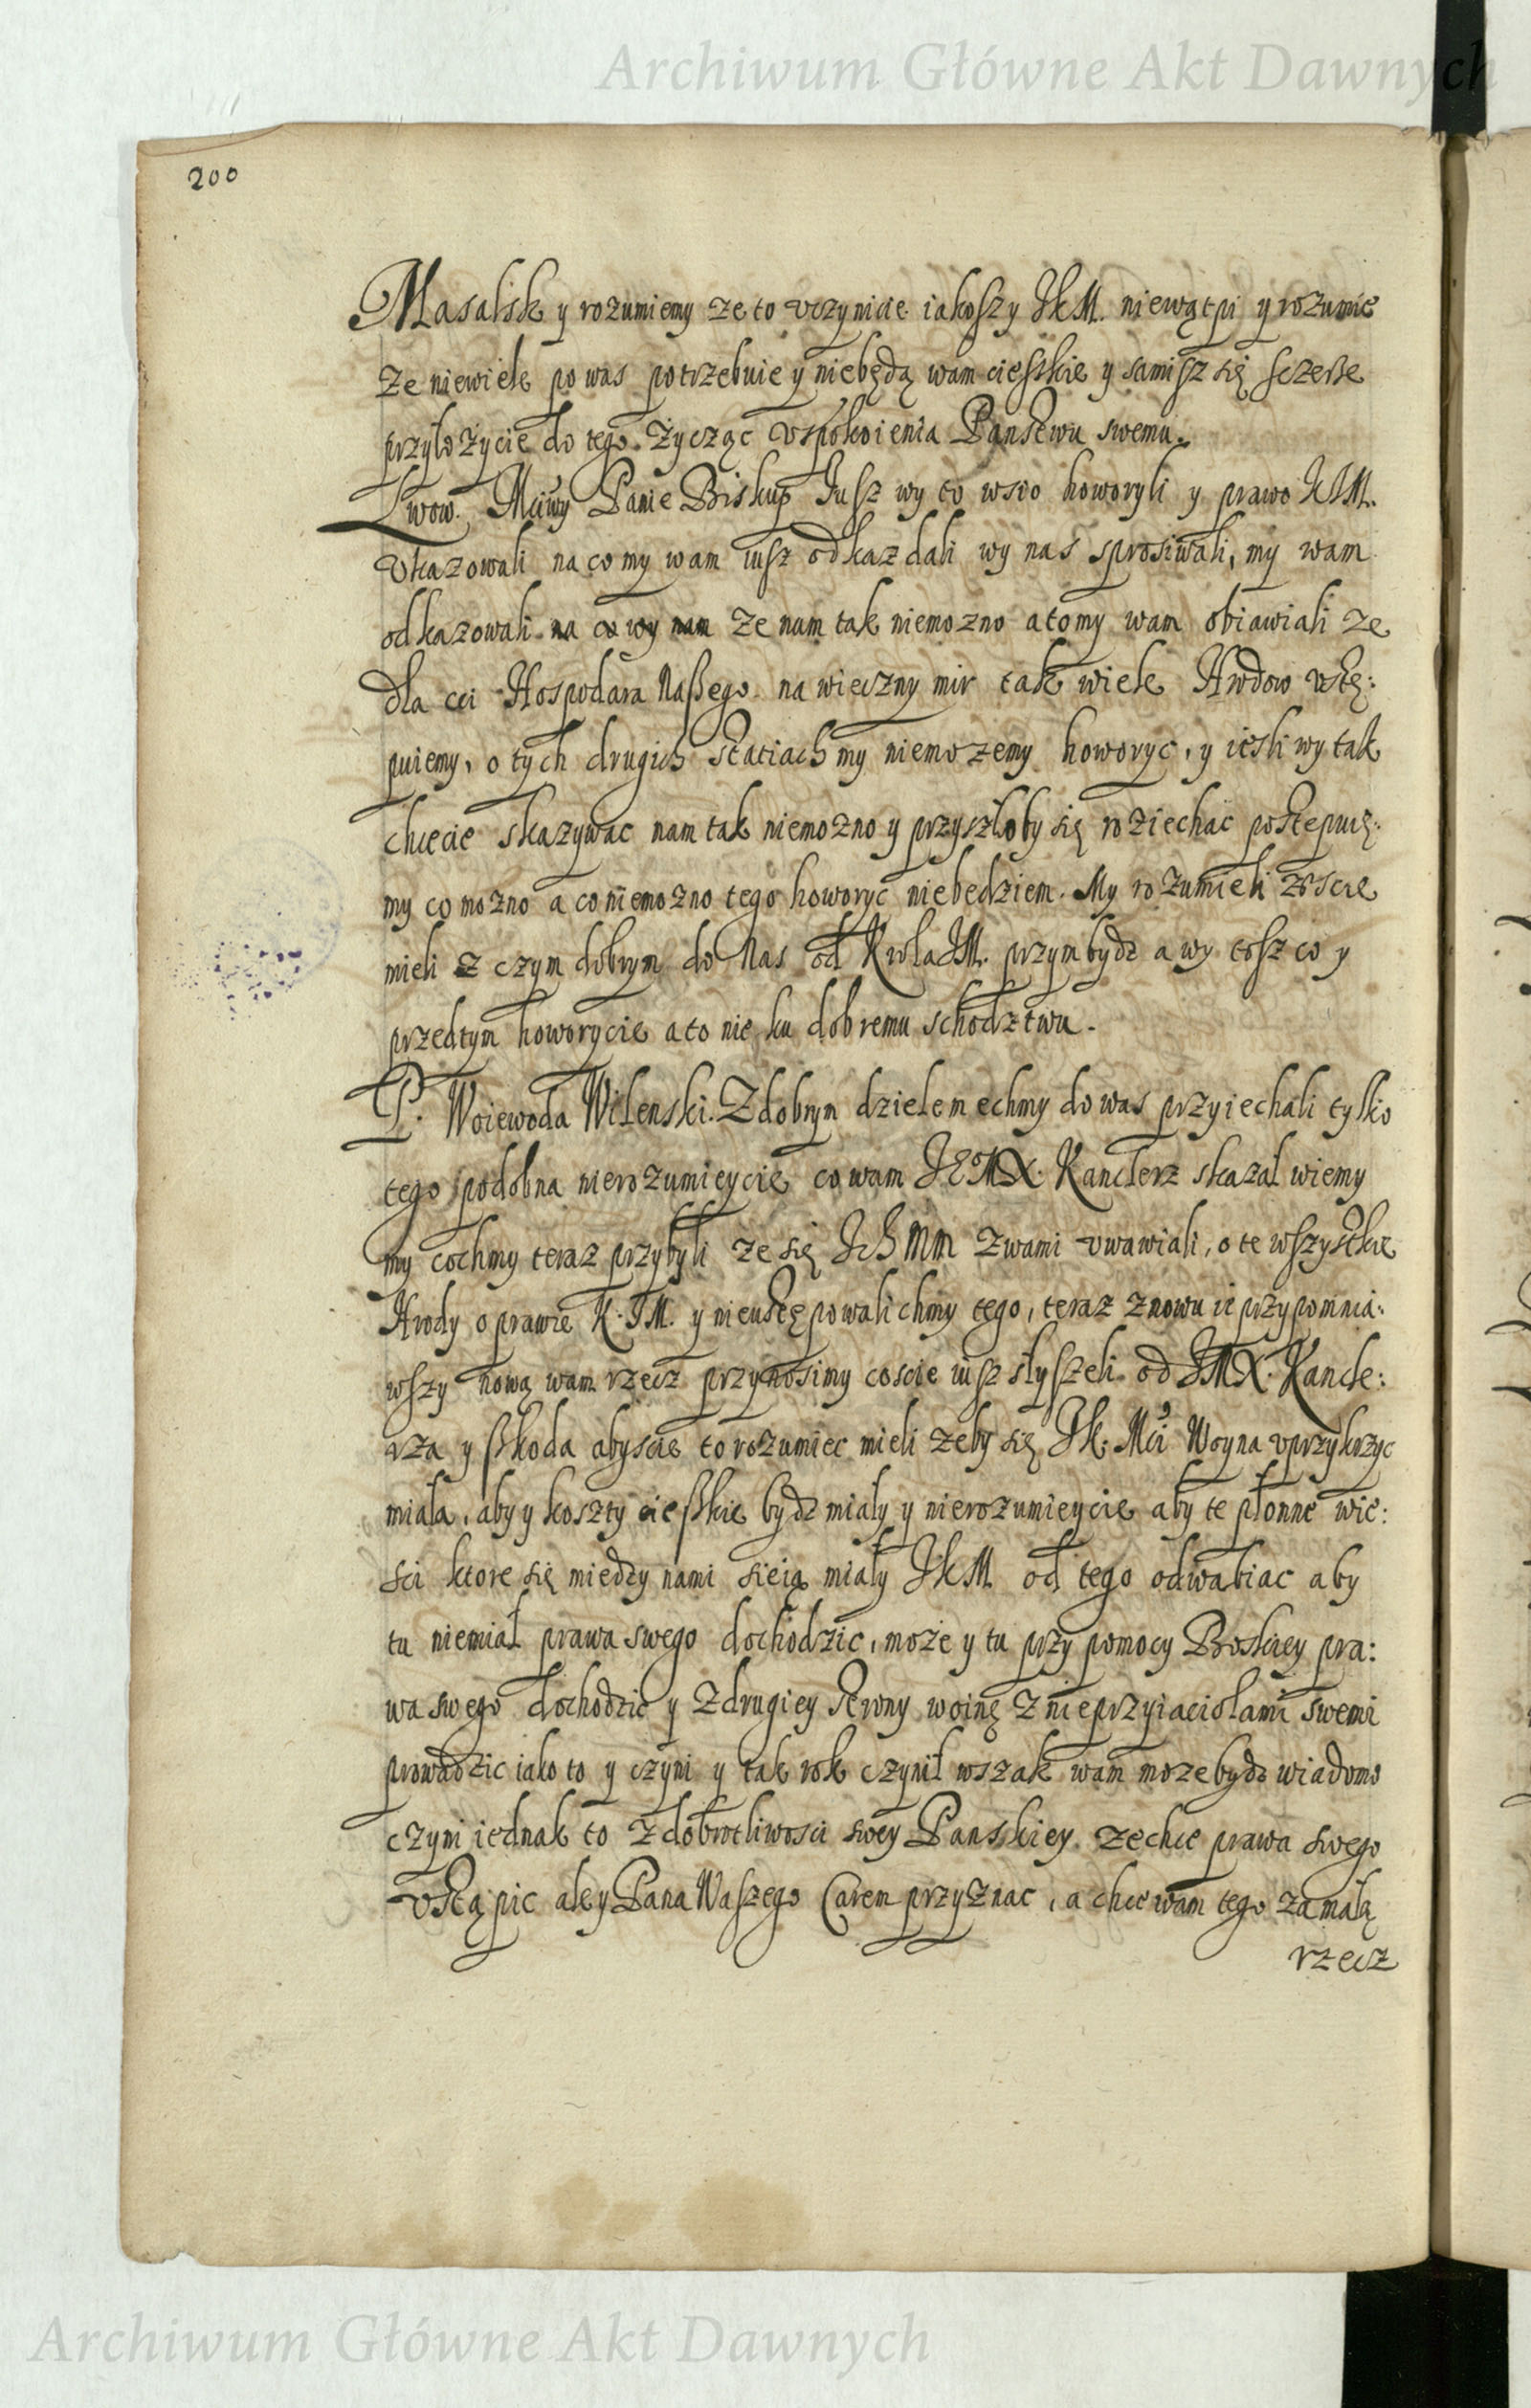 Archiwum Główne Akt Dawnych
200
Masalsk y rozumiemy ze to vczynicie iakoszy JKM. niewątpi y rozumie
ze niewiele po was potrzebuie y niebędą wam cieszkie y samisz się sczerze
przyłożycie do tego. Życząc vspokoienia Panstwu swemu.
Lwow. Mciwy Panie Biskup Jusz wy to wsio howoryli y prawo KJM.
vkazowali na co my wam iusz odkaz dali wy nas sprosiwali, my wam
odkazowali na co wy nam ze nam tak niemozno a to my wam obiawiali ze
dla cci Hospodara Naszego na wieczny mir tak wiele Hrodow vstę:
puiemy, o tych drugich statiach my niemozemy howoryc, y iesli wy tak
chcecie skazywac nam tak niemozno y przyszłoby się roziechac postepuię:
my co mozno a co niemozno tego howoryc niebedziem. My rozumieli zescie
mieli z czym dobrym do Nas od Krola JM. przym bydz a wy tosz co y
przedtym howorycie a to nie ku dobremu schodztwu.
P. Woiewoda Wilenski. Z dobrym dzielem echmy do was przyiechali tylko
tego podobna nierozumieycie co wam JEMX. Kanclerz skazal wiemy
my cochmy teraz przybyli ze się IchMM z wami vwawiali, o te wszystkie
Hrody o prawie K. JM. y nieustępowalichmy tego, teraz znowu ie przypomnia:
wszy nową wam rzecz przynosimy coscie iusz słyszeli od JMX. Kancle:
rza y szkoda abyscie to rozumiec mieli zeby się JK. Mci Woyna vprzykrzyc
miała, aby y koszty cieszkie bydz miały y nierozumieycie aby te płonne wie:
sci ktore się miedzy nami sieią miały JKM od tego odwabiac aby
tu niemiał prawa swego dochodzic, może y tu przy pomocy Boskiey pra:
wa swego dochodzic y z drugiey strony woinę z nieprzyiaciołami swemi
prowadzic iako to y czyni y tak rok czynił wszak wam moze bydz wiadomo
czyni iednak to z dobrotliwosci swey Panskiey. ze chce prawa swego
vstąpic ale y Pana Waszego Carem przyznac, a chce wam tego za małą
rzecz
Archiwum Główne Akt Dawnych